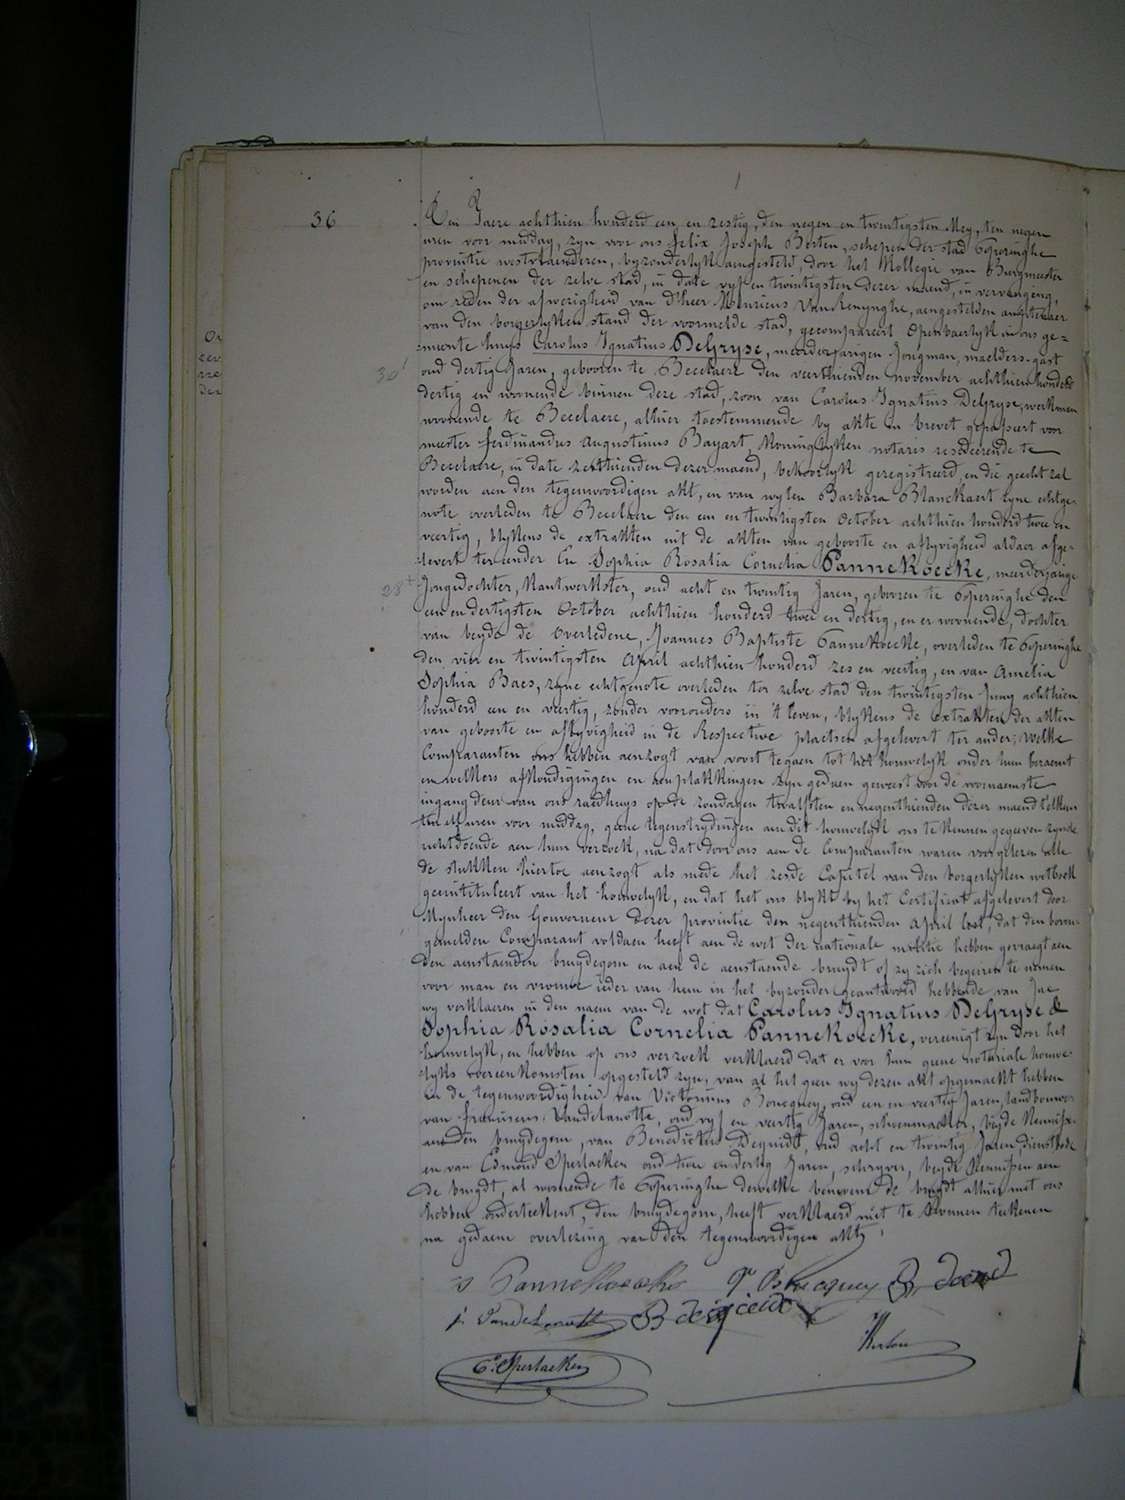 36
Den Jaere achthien honderd een en zestig, den negen en twintigsten Mey, ten negen
uren voor middag, zyn voor ons felix Joseph Berten, schepen der stad Poperinghe
provintie westvlaenderen, byzonderlyk aengesteld, door het Kollegie van Burgmeester
en schepenen der zelve stad, in date vyf en twintigsten dezer maend, in vervanging,
om reden der afwezigheid van d'heer Henricus Van Renynghe, aengestelden amptenaer
van den borgerlyken stand der voormelde stad, gecompareert openbaerlyk in ons ge=
meente huys Carolus Ignatius DeGryse, meerderjarigen Jongman, maelders-gast
30
oud dertig Jaren, gebooren te Becelaere den veerthienden november achthien honderd
dertig en woonende binnen deze stad, zoon van Carolus Ignatius DeGryse, werkman
woonende te Becelaere, alhier toestemmende by akte in brevet gepasseert voor
meester ferdinandus Augustinus Bayart, Koninglyken notaris resideerende te
Becelaere, in date zesthienden dezer maend, behoorlyk geregistreerd, en die gehecht zal
worden aen den tegenwoordigen akt, en van wylen Barbara Blanckaert zyne echtge-
note overleden te Becelaere den een en twintigsten October achthien honderd twee en
veertig, blykens de extrakten uit de akten van geboorte en aflyvigheid aldaer afge-
levert ter eender En Sophia Rosalia Cornelia PanneKoecke, meerderjarige
28
Jongedochter, Kantwerkster, oud acht en twintig Jaren, gebooren te Poperinghe den
een en dertigsten October achthien honderd twee en dertig, en er woonende, dochter
van beyde de overledene, Joannes Baptiste PanneKoecke, overleden te Poperinghe
den vier en twintigsten April achthien honderd zes en veertig, en van Amelia
Sophia Baes, zyne echtgenote overleden ter zelve stad den twintigsten Juny achthien
honderd een en veertig, zonder voorouders in 't leven, blykens de extrakten der akten
van geboorte en aflyvigheid in de Respective plaetsen afgelevert ter ander; welke
Comparanten ons hebben aenzogt van voort te gaen tot het houwelyk onder hun beraemt
en welkers afkondigingen en aenplakkingen zyn gedaen geweest voor de voornaemste
ingang deur van ons raedhuys op de zondagen twaelfsten en negenthienden dezer maend telkens
ten elf uren voor middag, geene tegenstrydingen aen dit houwelyk ons te kennen gegeven zynde
rechtdoende aen hun verzoek, na dat door ons aen de Comparanten waren voorgelezen alle
de stukken hiertoe aenzogt als mede het zesde Capitel van den borgerlyken wetboek
geintituleert van het houwelyk, en dat het ons blykt by het Certificat afgelevert door
Mynheer den Gouverneur dezer provintie den negenthienden April lest, dat den boven
gemelden Comparant voldaen heeft aen de wet der nationale militie hebben gevraegt aen
den aenstaenden bruydegom en aen de aenstaende bruydt of zy zich begeiren te nemen
voor man en vrouwe ieder van hem in het byzonder geantwoord hebbende van Jae
wy verklaeren in den naem van de wet dat Carolus Ignatius DeGryse &
Sophia Rosalia Cornelia PanneKoecke, vereenigt zyn door het
houwelyk, en hebben op ons verzoek verklaerd dat er voor hun geene notariale houwe-
lyks overeenkomsten opgesteld zyn, van al het geen wy dezen akt opgemaekt hebben
in de tegenwoordigheid van Victorinus Boucquey, oud een en veertig Jaren, landbouwer
van franciscus Vandelanotte, oud vyf en veertig Jaren, schoenmaker, beyde Kennissen
aen den bruydegom, van Benedictus Dequidt, oud acht en twintig Jaren, dienstbode
en van Edmond Sperlaeken oud twee en dertig Jaren, schryver, beyde Kennissen aen
de bruydt, al woonende te Poperinghe dewelke benevens de bruydt alhier met ons
hebben onderteekent, den bruydegom, heeft verklaerd niet te konnen teekenen
na gedaene overlezing van den tegenwoordigen akt,
S Pannekoecke
f Vandelanotte
E. Sperlaeken
Berten